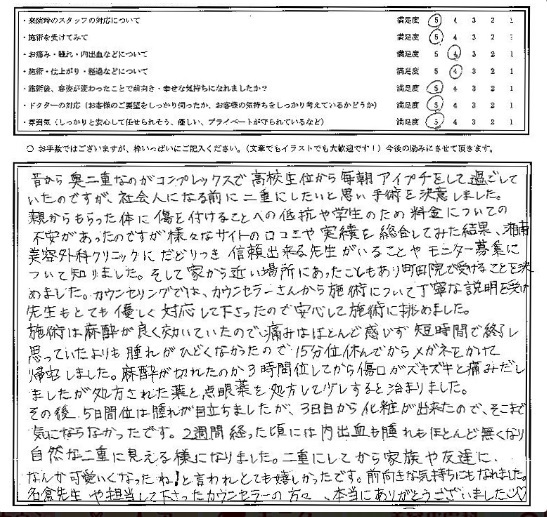 ・来院時のスタッフの対応について 満足度 5 4 3 2 1
・施術を受けてみて 満足度 5 4 3 2 1
・お痛み・腫れ・内出血などについて 満足度 5 4 3 2 1
・施術・仕上がり・経過などについて 満足度 5 4 3 2 1
・施術後、容姿が変わったことで前向き・幸せな気持ちになれましたか? 満足度 5 4 3 2 1
・ドクターの対応(お客様のご要望をしっかり伺ったか、お客様の気持ちをしっかり考えているかどうか) 満足度 5 4 3 2 1
・雰囲気(しっかりと安心して任せられそう、優しい、プライベートが守られているなど) 満足度 5 4 3 2 1
○ お手数ではございますが、枠いっぱいにご記入ください。(文章でもイラストでも大歓迎です!)今後の励みにさせて頂きます。
昔から奥二重なのがコンプレックスで高校生位から毎朝アイプチをして過ごして
いたのですが、社会人になる前に二重にしたいと思い手術を決意しました。
親からもらった体に傷を付けることへの抵抗や学生のため料金についての
不安があったのですが様々なサイトの口コミや実績を総合してみた結果、湘南
美容外科クリニックにたどりつき信頼出来る先生がいることやモニター募集に
ついて知りました。そして家から近い場所にあったこともあり町田院で受けることを決
めました。カウンセリングでは、カウンセラーさんから施術について丁寧な説明を受け
先生もとても優しく対応して下さったので安心して施術に挑めました。
施術は麻酔が良く効いていたので、痛みはほとんど感じず短時間で終了し
思っていたよりも腫れがひどくなかったので15分位休んでからメガネをかけて
帰宅しました。麻酔が切れたのか3時間位してから傷口がズキズキと痛みだし
ましたが処方された薬と点眼薬を処方して少しすると治まりました。
その後、5日間位は腫れが目立ちましたが、3日目から化粧が出来たので、そこまで
気にならなかったです。2週間経った頃には内出血も腫れもほとんど無くなり
自然な二重に見える様になりました。二重にしてから家族や友達に、
なんか可愛いくなったね!と言われとても嬉しかったです。前向きな気持ちにもなれました。
名倉先生や担当して下さったカウンセラーの方々、本当にありがとうございました♡